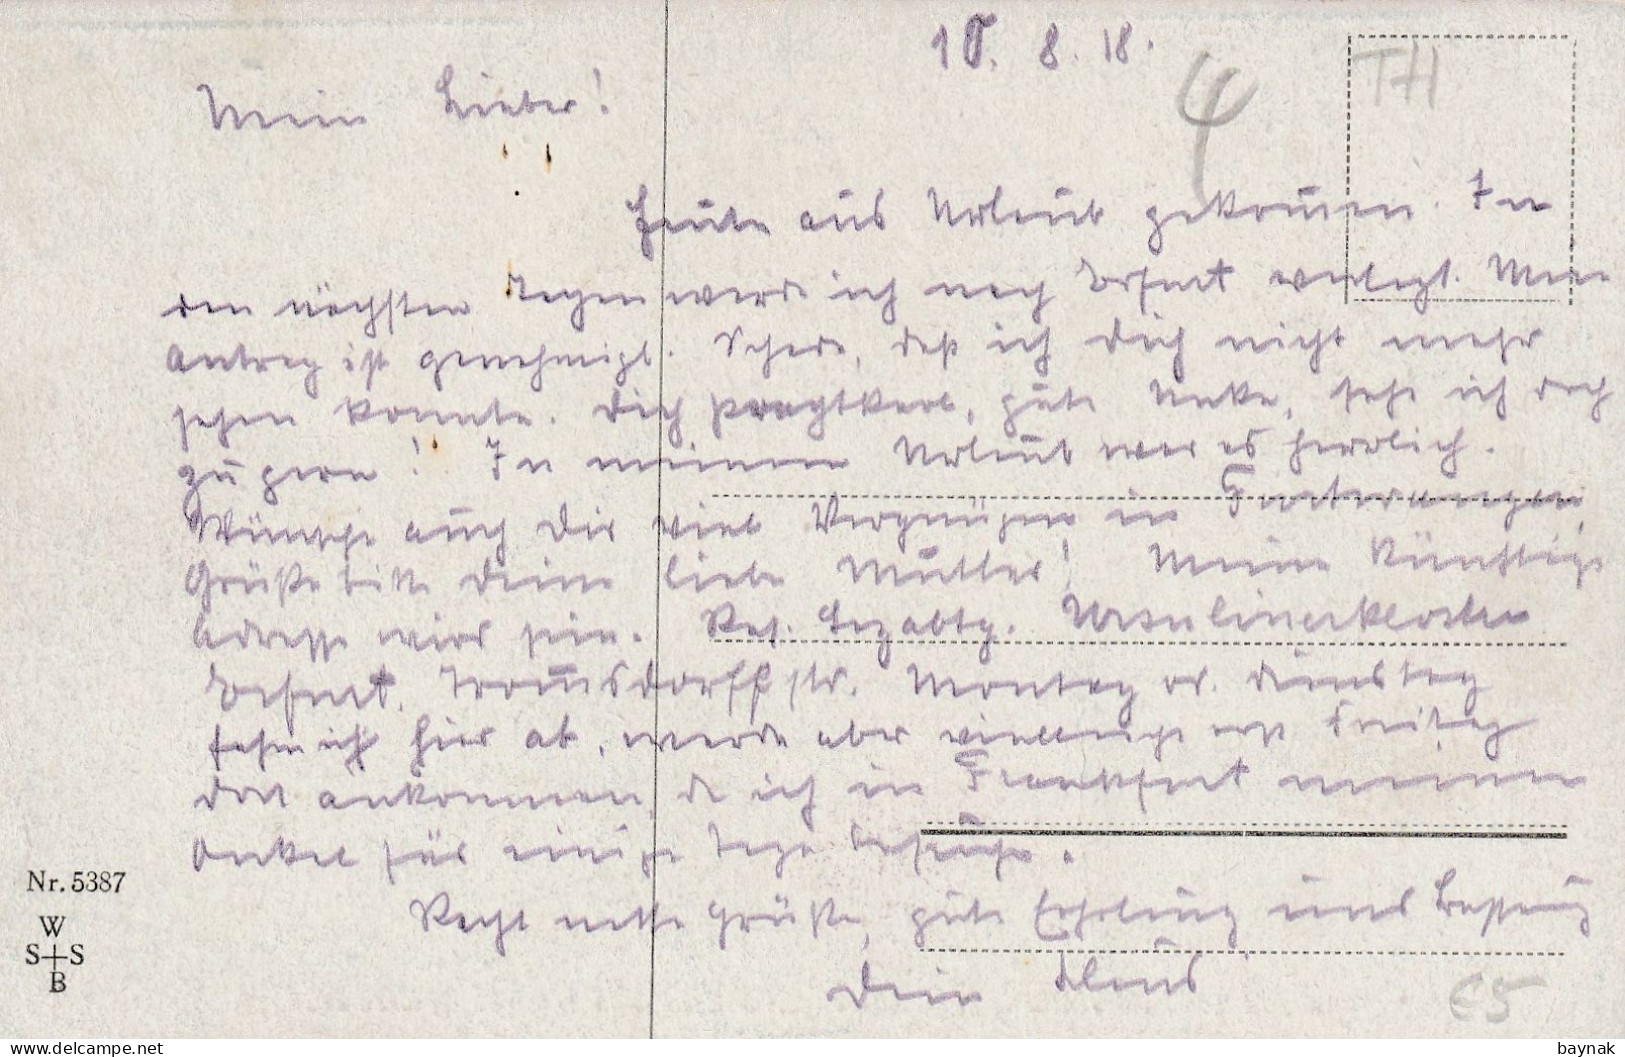 10. 8. 18.
4
TH
Mein Lieber!
Heute aus Urlaub gekommen. In
den nächsten Tagen werde ich nach Erfurt verlegt. Mein
Antrag ist genehmigt. Schade, daß ich Dich nicht mehr
sehen konnte. Dich Prachtkerl, gute, sehe ich doch
zu gern! In meinem Urlaub war es herrlich.
Wünsche auch Dir viel Vergnügen in
Grüße bitte Deine liebe Mutter! Meine künftige
Adresse wird sein. Res. Laz. Abtg. Ursulinerkloster
Erfurt, Trommsdorffstr. Montag od. Dienstag
fahre ich hier ab, werde aber vielleicht erst Freitag
dort ankommen, da ich in Frankfurt meinen
Onkel für einige Tage besuche.
Recht nette Grüße, gute Erholung und Besserung
Dein
Nr. 5387
W
S+S
B
€5
baynak